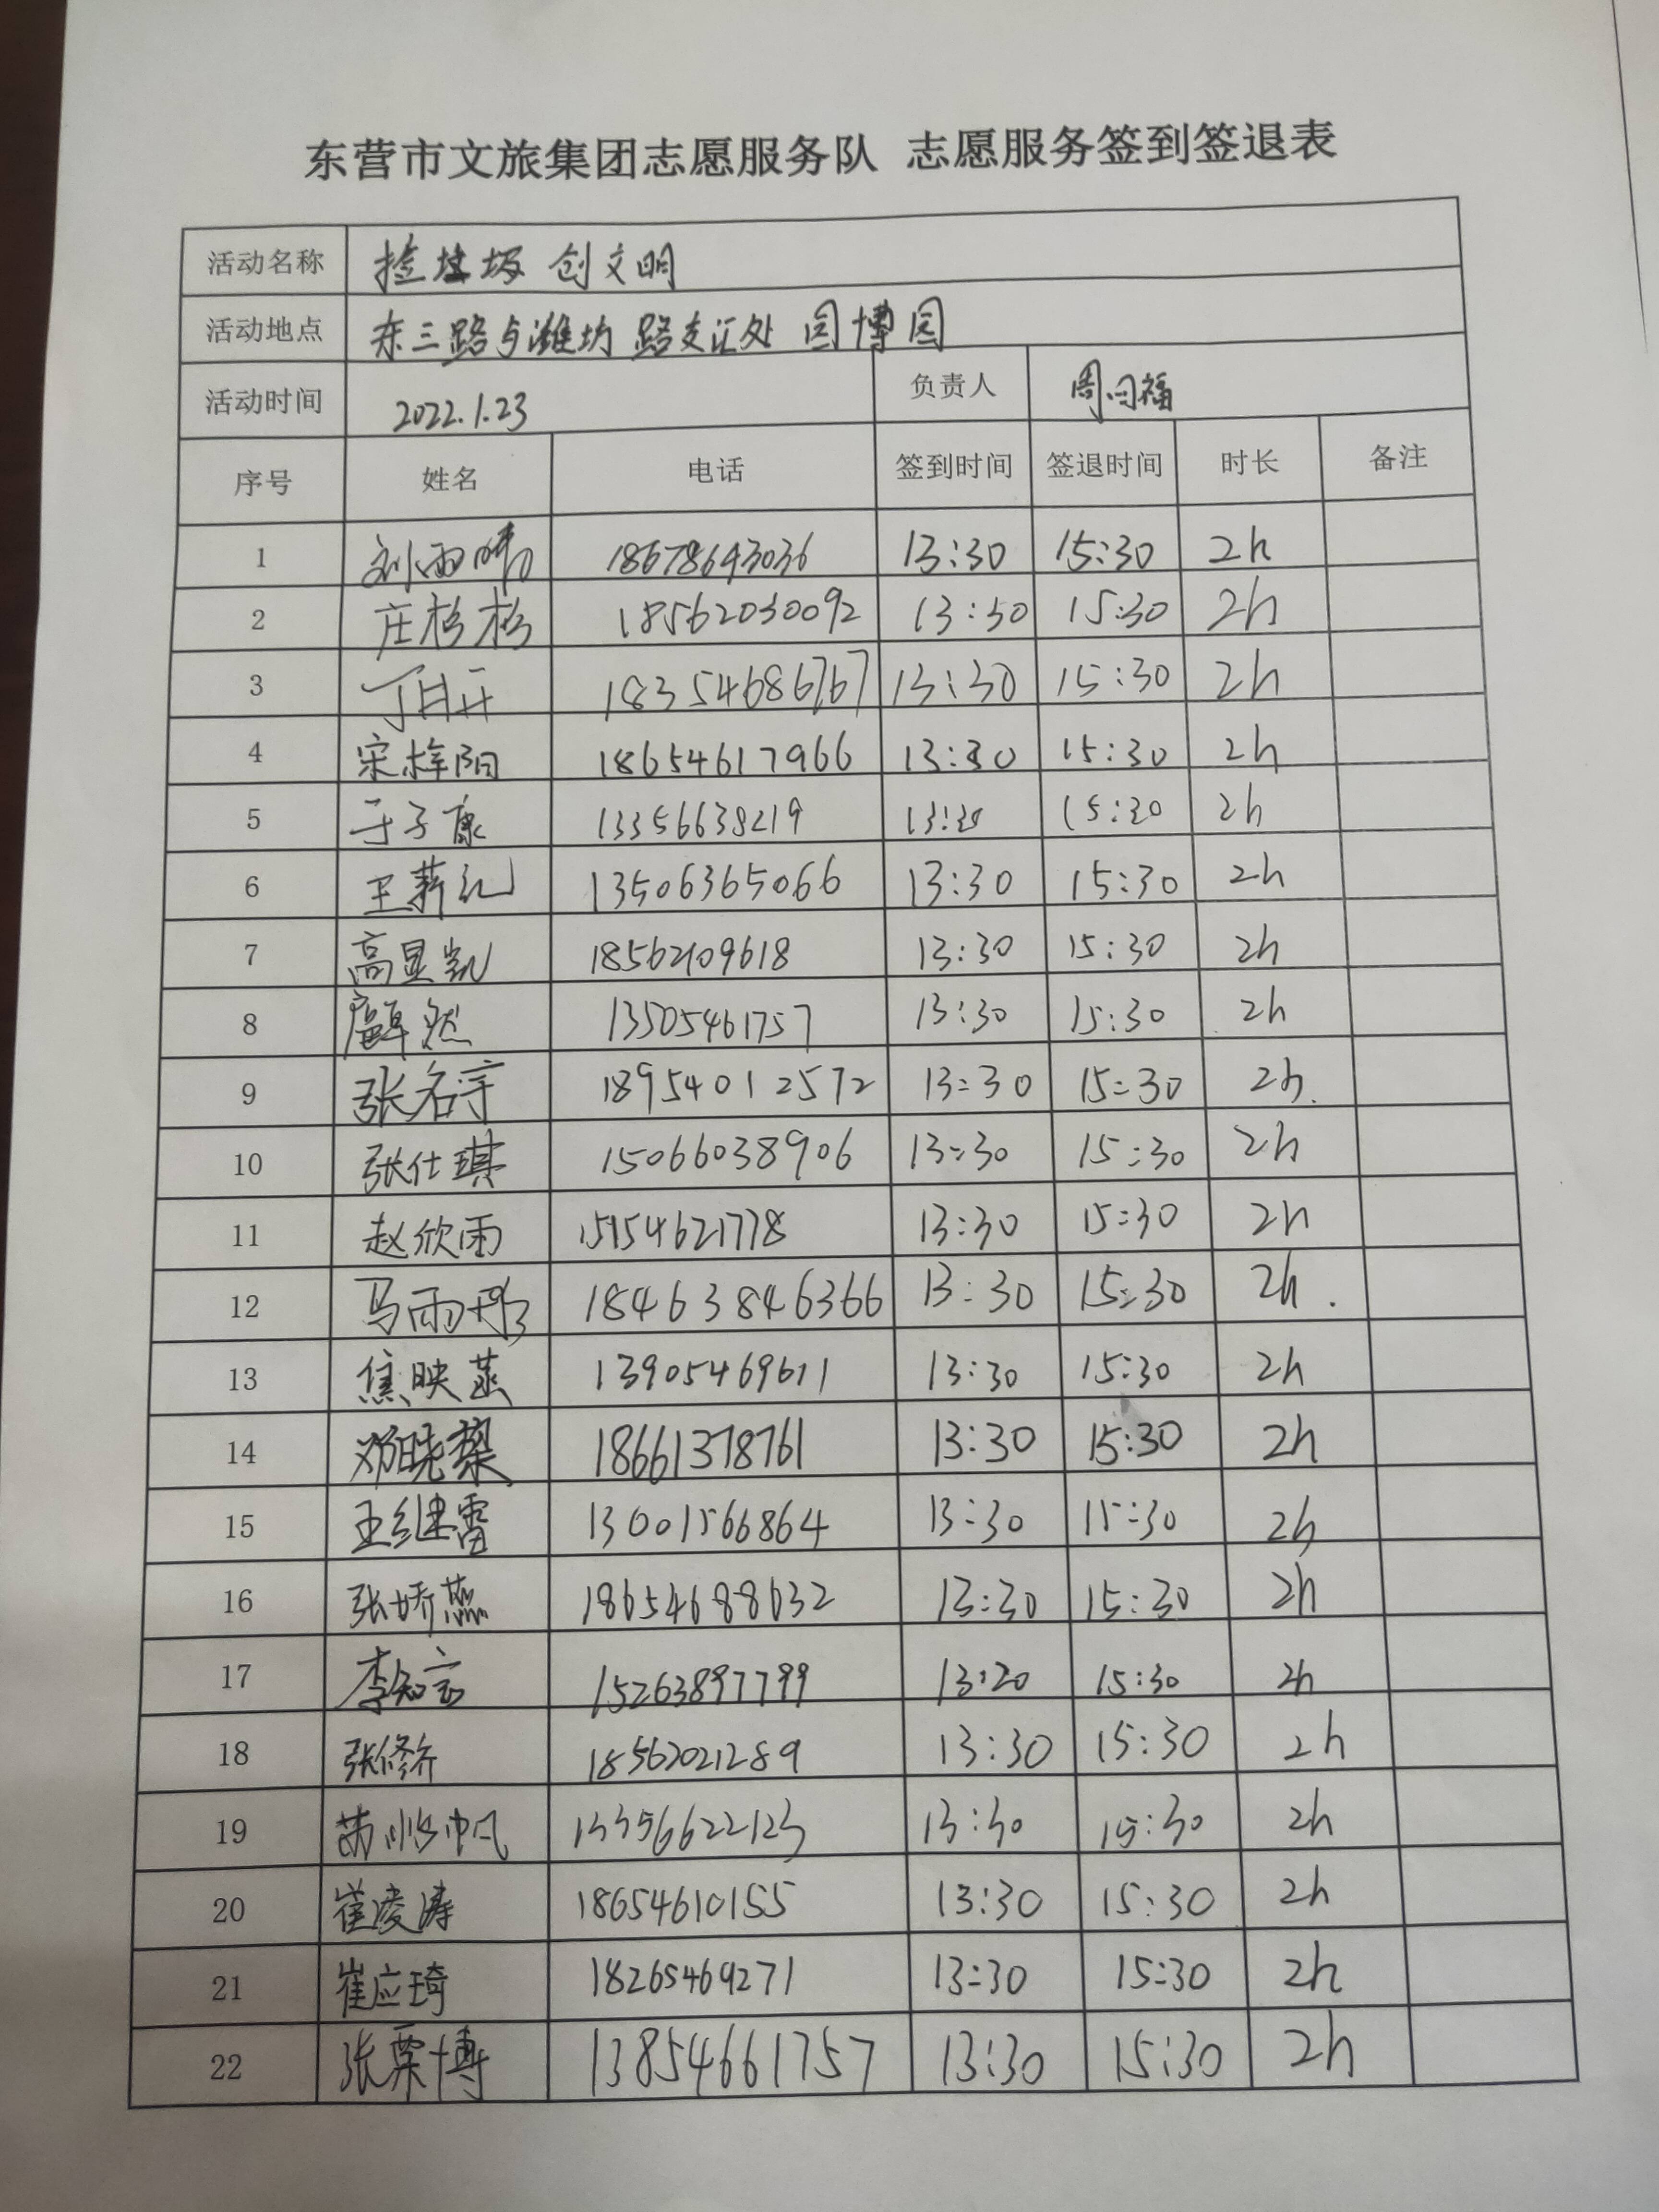 东营市文旅集团志愿服务队 志愿服务签到签退表
活动名称 捡垃圾 创文明
活动地点 东三路与潍坊路交汇处 园博园
活动时间 2022.1.23 负责人 周福
序号 姓名 电话 签到时间 签退时间 时长 备注
1 刘雨晴 18678643036 13:30 15:30 2h
2 庄杉杉 18562030092 13:30 15:30 2h
3 18354686767 13:30 15:30 2h
4 宋梓阳 18654617966 13:30 15:30 2h
5 于子康 13356638219 13:30 15:30 2h
6 王薪 13506365066 13:30 15:30 2h
7 高显凯 18562109618 13:30 15:30 2h
8 然 13505461757 13:30 15:30 2h
9 张名宇 18954012572 13:30 15:30 2h.
10 张仕琪 15066038906 13:30 15:30 2h
11 赵欣雨 15154621778 13:30 15:30 2h
12 马雨彤 18463846366 13:30 15:30 2h.
13 焦映 13905469611 13:30 15:30 2h
14 邓晓 18661378761 13:30 15:30 2h
15 王继雷 13001566864 13:30 15:30 2h
16 张娇燕 18654688632 13:30 15:30 2h
17 李知言 15263897799 13:20 15:30 2h
18 张修齐 18562021289 13:30 15:30 2h
19 帆 13356622123 13:30 15:30 2h
20 崔凌涛 18654610155 13:30 15:30 2h
21 崔应琦 18265469271 13:30 15:30 2h
22 张栗博 13854661757 13:30 15:30 2h